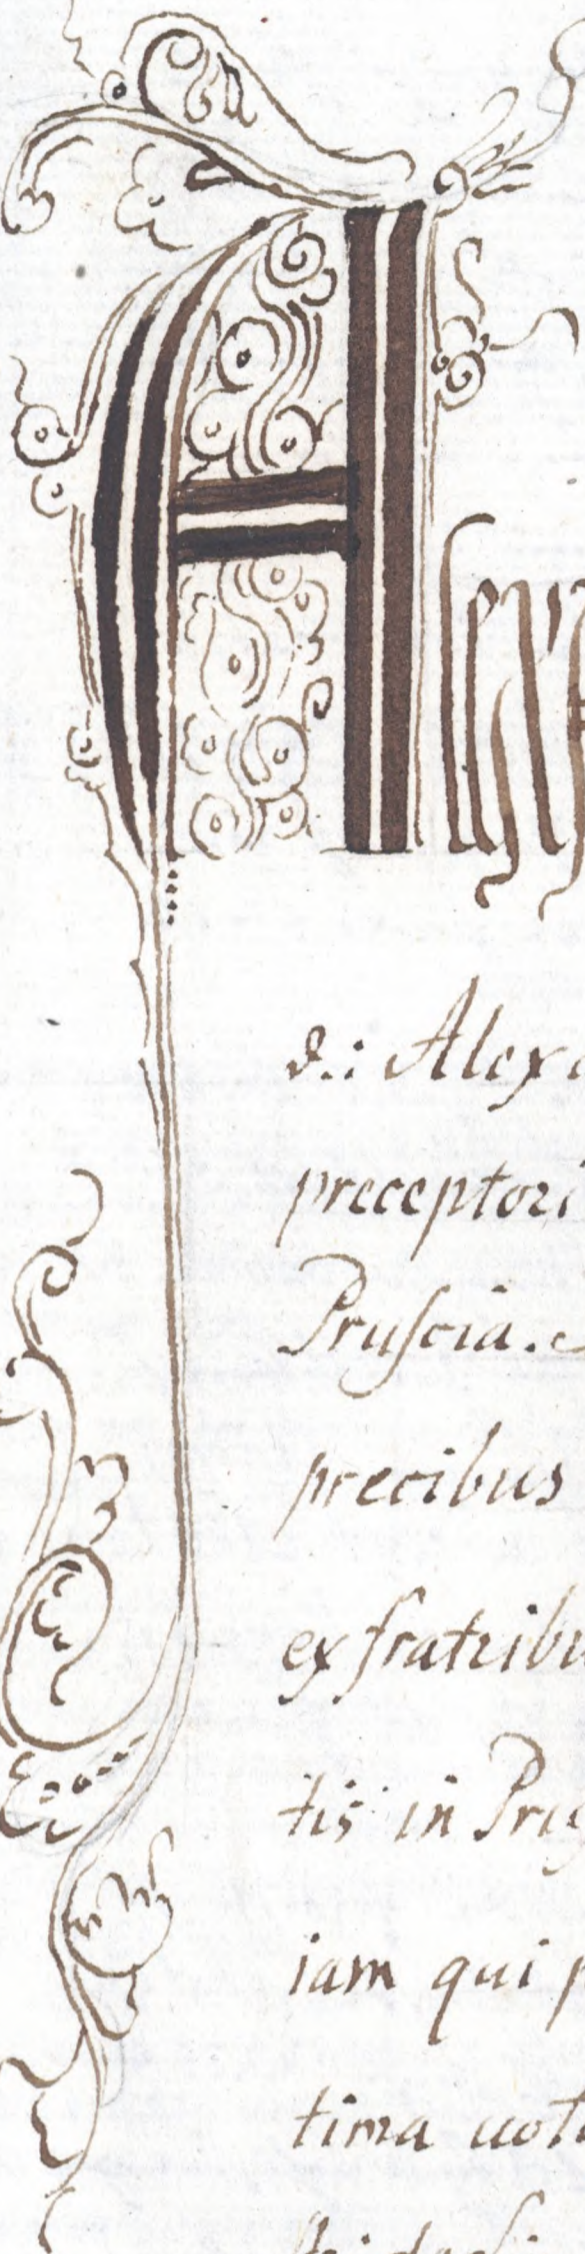 Alex
d.: Alex
preceptori
Pruscia.
precibus
ex fratribu
tis in Pru
iam qui p
tima uot